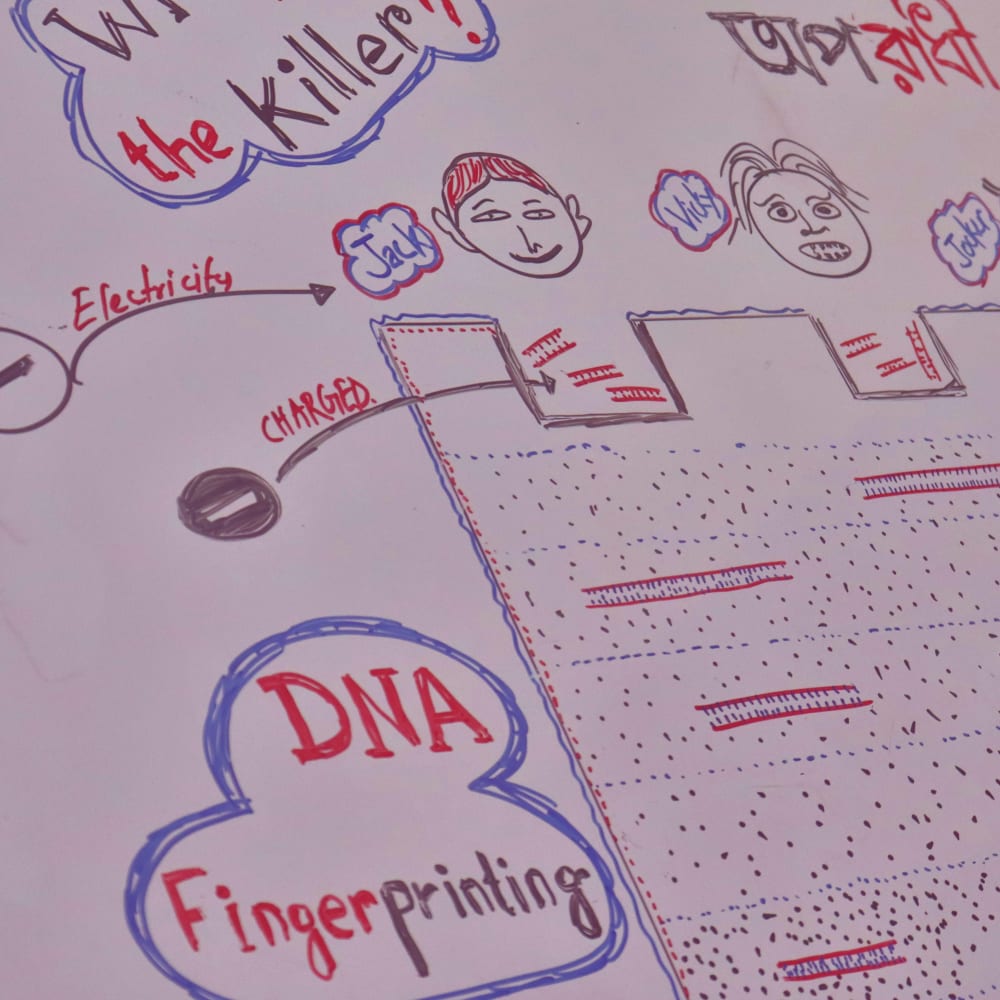 the Killer?
অপরাধী
Jack
Vicky
Joker
Electricity
CHARGED.
DNA
Fingerprinting